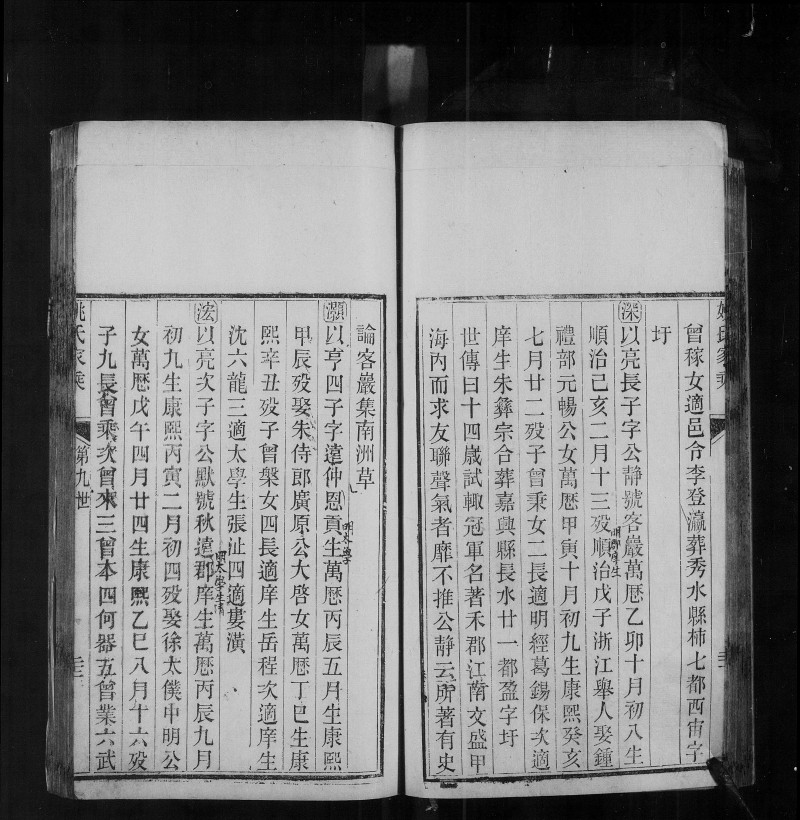 姚氏家乘
曾稼女適邑令李登瀛葬秀水縣柿七都西宙字
圩
深以亮長子字公靜號客巖萬歷乙卯十月初八生
明郡庠生
順治己亥二月十三殁順治戊子浙江舉人娶鍾
禮部元暢公女萬歷甲寅十月初九生康熙癸亥
七月廿二殁子曾乘女二長適明經葛錫保次適
庠生朱彝宗合葬嘉興縣長水廿一都盈字圩
世傳曰十四歲試輙冠軍名著禾郡江南文盛甲
海內而求友聯聲氣者靡不推公靜云所著有史
論客巖集南洲草
灝以亨四子字遠仲恩貢生萬歷丙辰五月生康熙
明太學
甲辰殁娶朱侍郎廣原公大啓女萬歷丁巳生康
熙辛丑殁子曾槃女四長適庠生岳程次適庠生
沈六龍三適太學生張沚四適婁潢
浤以亮次子字公默號秋遠郡庠生萬歷丙辰九月
明太學生
初九生康熙丙寅二月初四殁娶徐太僕申明公
女萬歷戊午四月廿四生康熙乙巳八月十六殁
子九長曾乘次曾來三曾本四何器五曾業六武
姚氏家乘
第九世